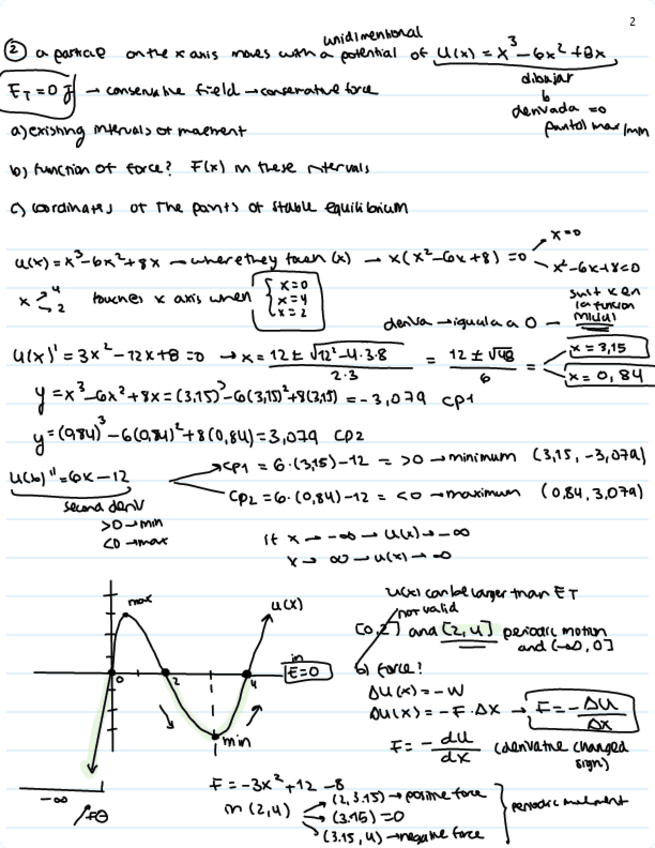 2
unidimentional
② a particle on the x axis moves with a potential of U(x) = x³ - 6x² + 8x
E_T = 0 J → conservative field → conservative force
dibujar
derivada = 0
puntos max/min
a) existing intervals of movement
b) function of force? F(x) in these intervals
c) coordinates of the points of stable equilibrium
u(x) = x³ - 6x² + 8x → where they touch (x) → x(x² - 6x + 8) = 0
x=0
x² - 6x + 8 = 0
x 4 2 touches x axis when { x=0 x=4 x=2
sust x en la funcion
deriva → iguala a 0
u(x)' = 3x² - 12x + 8 = 0 → x = 12 ± √12² - 4·3·8 / 2·3 = 12 ± √48 / 6 =
x = 3,15
x = 0,84
y = x³ - 6x² + 8x = (3,15)³ - 6(3,15)² + 8(3,15) = -3,079 cp1
y = (0,84)³ - 6(0,84)² + 8(0,84) = 3,079 cp2
u(x)'' = 6x - 12
cp1 = 6·(3,15) - 12 = >0 → minimum (3,15, -3,079)
cp2 = 6·(0,84) - 12 = <0 → maximum (0,84, 3,079)
second deriv
>0 → min
<0 → max
if x → -∞ → u(x) → -∞
x → ∞ → u(x) → ∞
max
u(x)
0
2
4
min
in
E=0
-∞
u(x) can be larger than E_T
not valid
[0,2] and [2,4] periodic motion
and (-∞, 0]
b) force?
ΔU(x) = -W
ΔU(x) = -F·Δx → F = - ΔU / Δx
F = - du / dx (derivative changed sign)
F = -3x² + 12 - 8
in (2,4)
(2, 3.15) → positive force
(3.15) = 0
(3.15, 4) → negative force
periodic movement